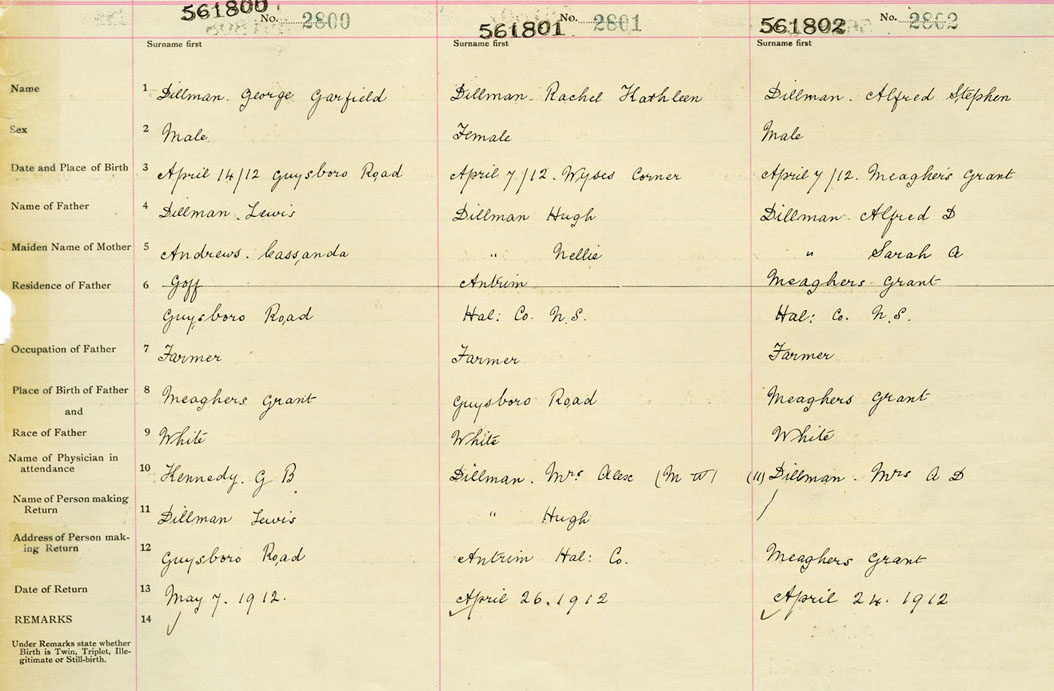 561800 No. 2800 561801 No. 2801 561802 No. 2802
Surname first Surname first Surname first
Name 1 Dillman. George Garfield Dillman. Rachel Kathleen Dillman. Alfred Stephen
Sex 2 Male Female Male
Date and Place of Birth 3 April 14/12 Guysboro Road April 7/12. Wyses Corner April 7/12. Meaghers Grant
Name of Father 4 Dillman. Lewis Dillman Hugh Dillman. Alfred D
Maiden Name of Mother 5 Andrews. Cassanda " Nellie " Sarah A
Residence of Father 6 Goff Antrim Meaghers Grant
Guysboro Road Hal: Co. N.S. Hal: Co. N.S.
Occupation of Father 7 Farmer Farmer Farmer
Place of Birth of Father 8 Meaghers Grant Guysboro Road Meaghers Grant
and
Race of Father 9 White White White
Name of Physician in
attendance 10 Kennedy. G B Dillman. Mrs Alex (M W) (11) Dillman. Mrs A D
Name of Person making
Return 11 Dillman Lewis " Hugh
Address of Person mak-
ing Return 12 Guysboro Road Antrim Hal: Co. Meaghers Grant
Date of Return 13 May 7. 1912. April 26. 1912 April 24. 1912
REMARKS 14
Under Remarks state whether
Birth is Twin, Triplet, Ille-
gitimate or Still-birth.